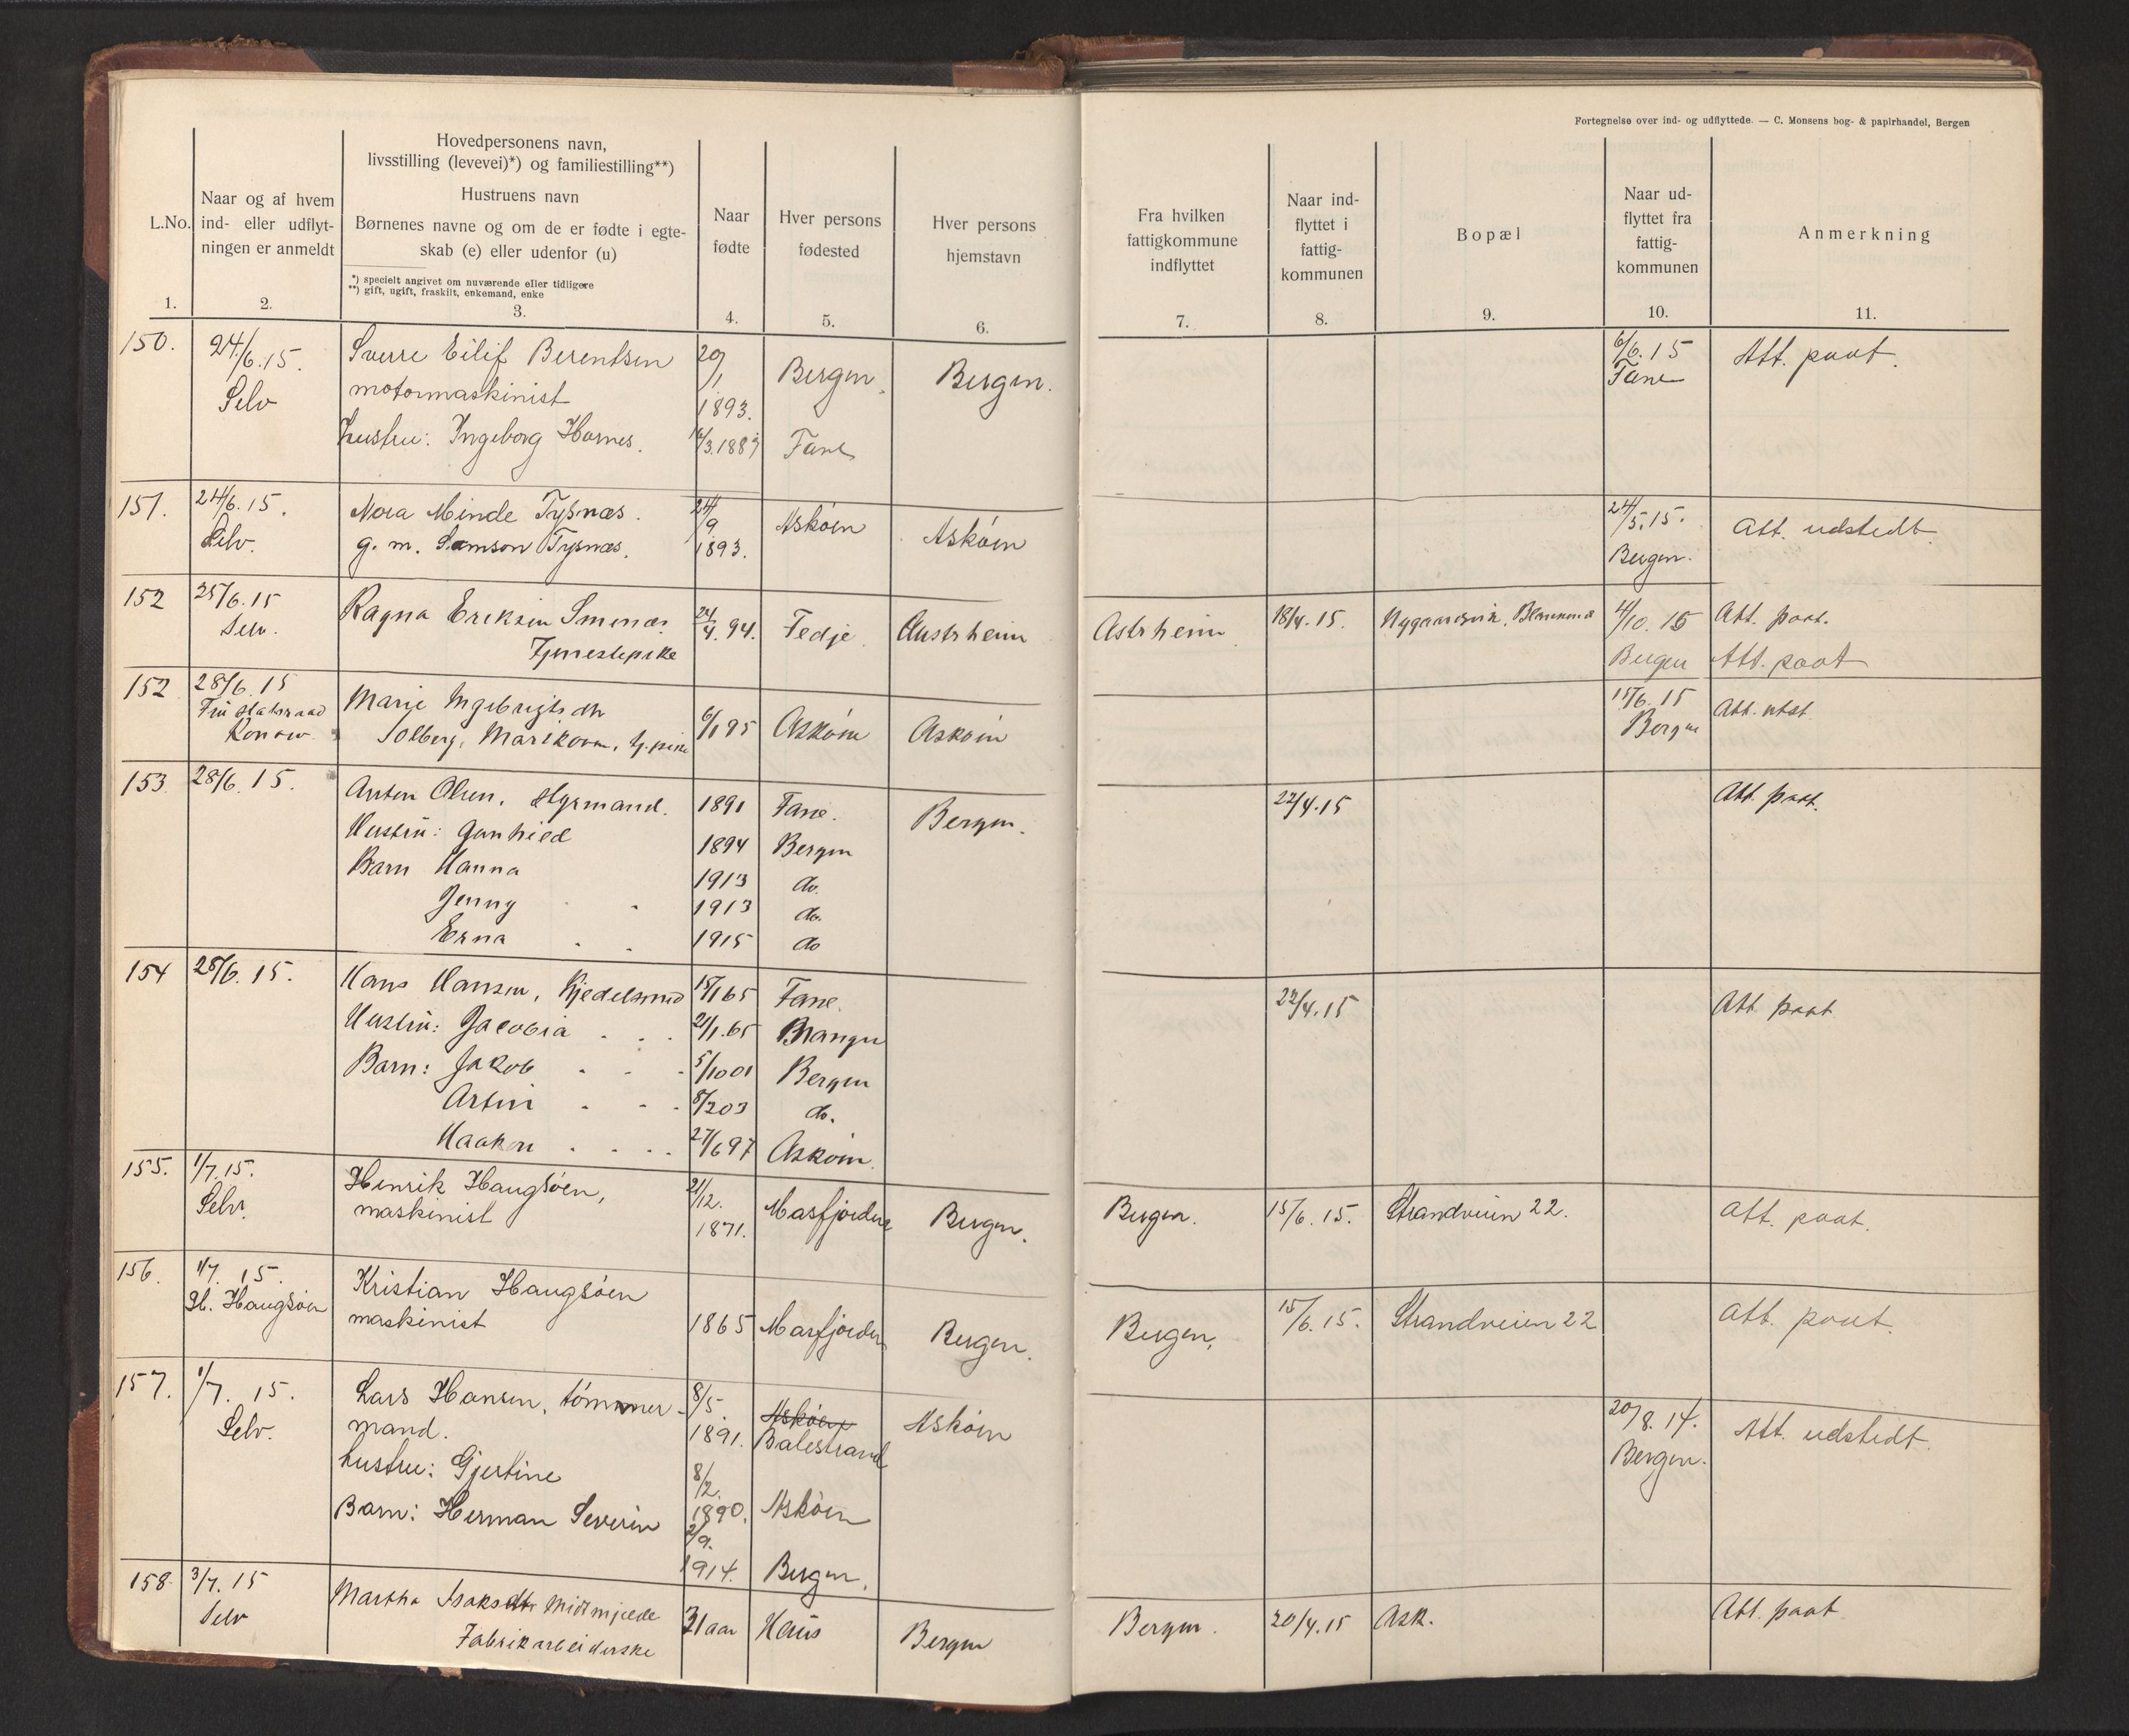 Fortegnelse over ind- og udflyttede. — C. Monsens bog- & papirhandel, Bergen
L.No.
1.
Naar og af hvem
ind- eller udflyt-
ningen er anmeldt
2.
Hovedpersonens navn,
livsstilling (levevei)*) og familiestilling**)
Hustruens navn
Børnenes navne og om de er fødte i egte-
skab (e) eller udenfor (u)
*) specielt angivet om nuværende eller tidligere
**) gift, ugift, fraskilt, enkemand, enke
3.
Naar
fødte
4.
Hver persons
fødested
5.
Hver persons
hjemstavn
6.
Fra hvilken
fattigkommune
indflyttet
7.
Naar ind-
flyttet i
fattig-
kommunen
8.
Bopæl
9.
Naar ud-
flyttet fra
fattig-
kommunen
10.
Anmerkning
11.
150. 24/6.15. Sverre Eilif Berentsen 29/1 Bergen. Bergen. 6/6.15 Att. paat.
Selv motormaskinist 1893. Fane
hustru: Ingeborg Hornes. Fane
151. 24/6.15. Nora Minde Tysnæs. 24/9 Askøen Askøen 24/5.15. Att. udstedt.
Selv. g. m. Samson Tysnæs. 1893. Bergen.
152 25/6.15 Ragna Eriksen 24/4.94. Fedje Austrheim Astrheim 18/4.15. 4/10.15 Att. paat.
Selv. Tjenestepike Bergen Att. paat
152 28/6.15 Marie Ingebrigtsdtr 15/6.15 Att. utst.
Konow Solberg, 6/1 95 Askøen Askøen Bergen
153 28/6.15. Anton Olsen, styrmand. 1891 Fane. Bergen. 22/4.15 Att. paat.
Hustru: Gunhild 1894 Bergen
Barn Hanna 1913 do.
Jenny 1913 do.
Erna 1915 do
154 28/6.15. Hans Hansen, Kjedelsmed 15/1 65 Fane. 22/4.15 Att. paat
Hustru: Jacobia 21/1.65
Barn: Jakob 5/10 01 Bergen
8/2 03 do.
Haakon 27/6 97 Askøen.
155. 1/7.15. Henrik Haugsøen, 21/12. Masfjorden Bergen. Bergen. 15/6.15. Strandveien 22. Att. paat.
Selv. maskinist 1871.
156. 1/7. 15. Kristian Haugsøen
H. Haugsøen maskinist 1865 Masfjorden Bergen. Bergen. 15/6.15. Strandveien 22 Att. paat.
157. 1/7. 15. Lars Hansen, tømmer- 8/5 Askøen Askøen 20/8.14. Att. udstedt.
Selv. mand. 1891. Balestrand Bergen.
hustru: Gjertine 8/2.
1890. Askøen
Barn: Herman Severin 2/9.
1914. Bergen.
158. 3/7.15 Martha Isaksdtr Midtmjelde 31 aar Haus Bergen Bergen. 20/4.15 Ask. Att. paat
Selv Fabrikarbeiderske